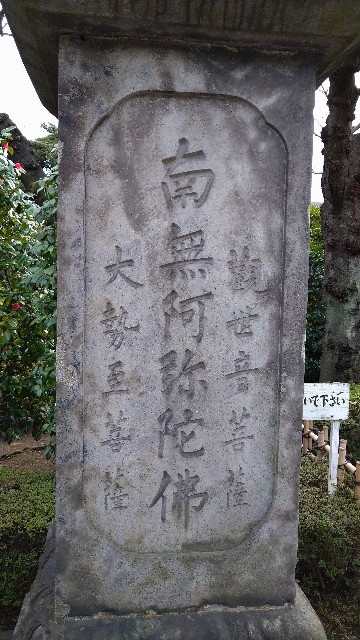 觀世音菩薩
南無阿弥陀佛
大勢至菩薩
いて下さい